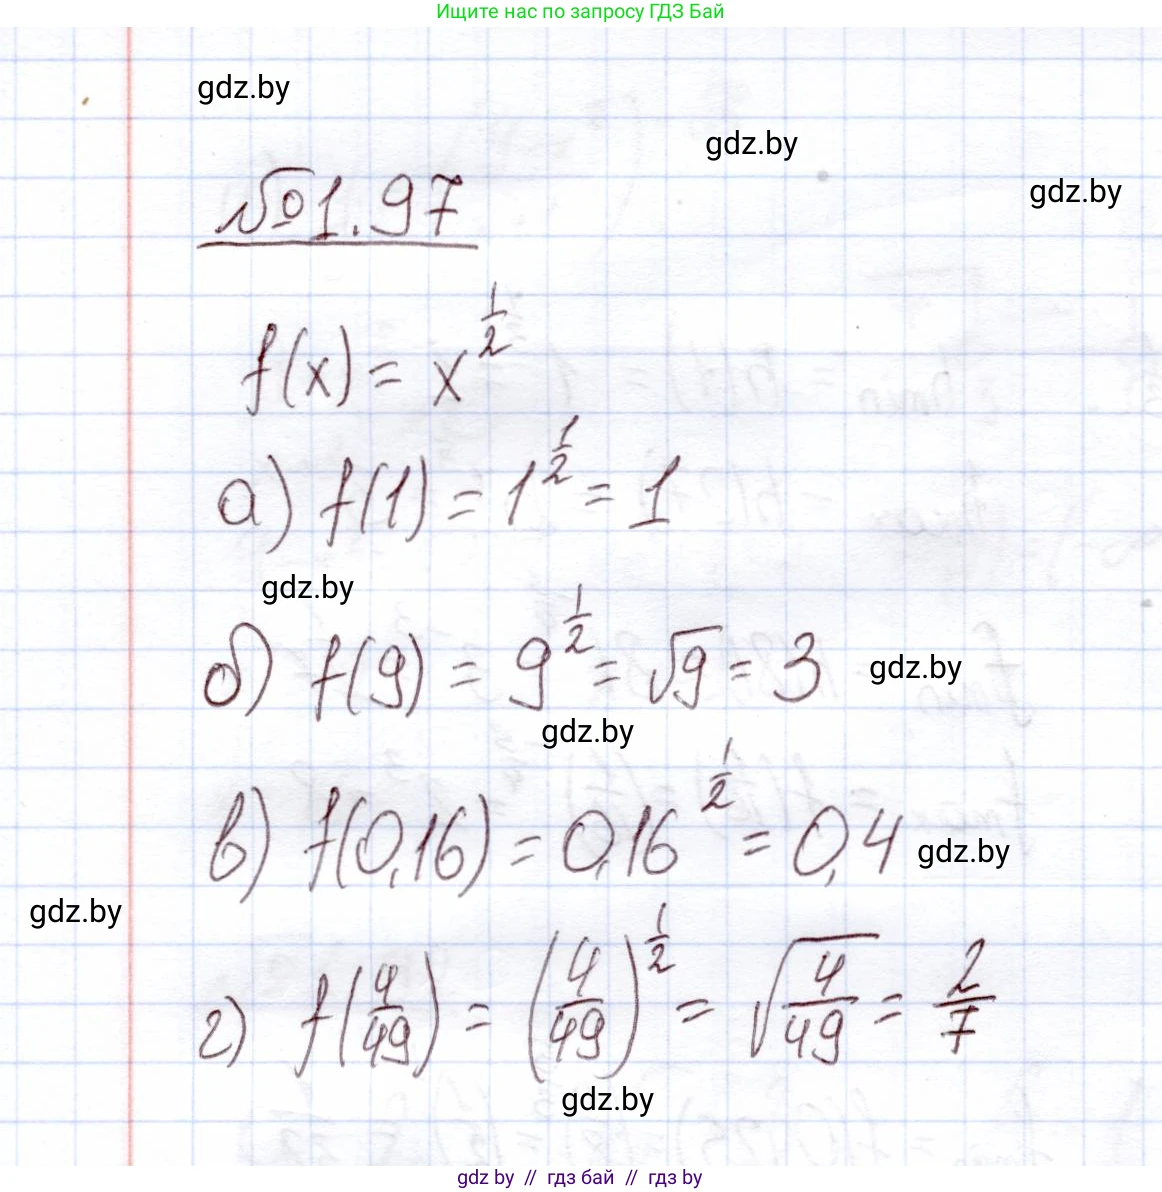 Ищите нас по запросу ГДЗ Бай
gdz.by
gdz.by
gdz.by
№1.97
f(x) = x^{\frac{1}{2}}
а) f(1) = 1^{\frac{1}{2}} = 1
gdz.by
б) f(9) = 9^{\frac{1}{2}} = √9 = 3
gdz.by
gdz.by
в) f(0,16) = 0,16^{\frac{1}{2}} = 0,4
gdz.by
gdz.by
г) f(\frac{4}{49}) = (\frac{4}{49})^{\frac{1}{2}} = \sqrt{\frac{4}{49}} = \frac{2}{7}
gdz.by
gdz by // гдз бай // гдз by